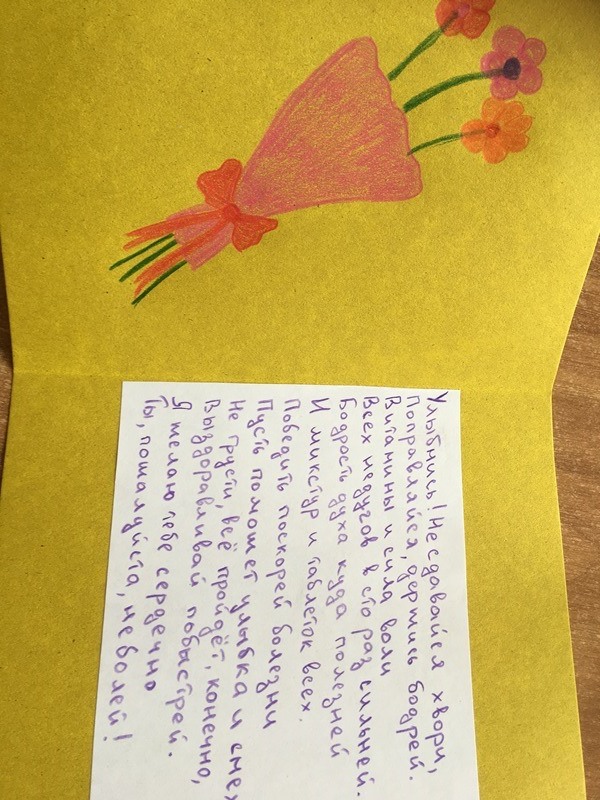 Улыбнись! Не сдавайся хвори,
Поправляйся, держись бодрей.
Витамины и сила воли
Всех недугов в сто раз сильней.
Бодрость духа куда полезней
И микстур и таблеток всех.
Победить поскорей болезни
Пусть поможет улыбка и смех
Не грусти, всё пройдёт, конечно,
Выздоравливай побыстрей.
Я желаю тебе сердечно
Ты, пожалуйста, не болей!